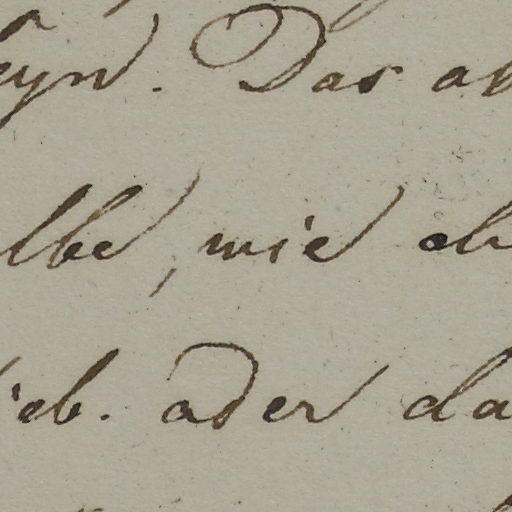 seyn. Das an
lbe, wie eh
ieb. oder da